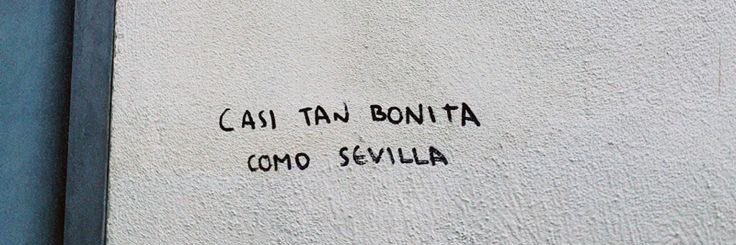 CASI TAN BONITA
COMO SEVILLA